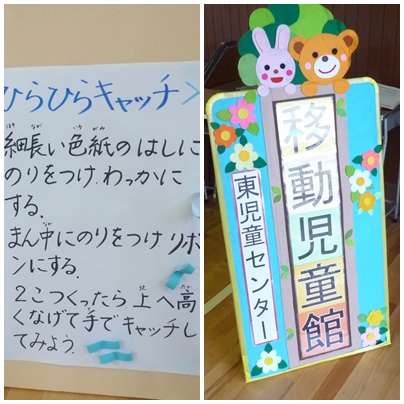 ひらひらキャッチ
細長い色紙のはしに
のりをつけ、わっかに
する。
まん中にのりをつけリボ
ンにする。
2こつくったら上へ高
くなげて手でキャッチし
てみよう。
移動児童館
東児童センター